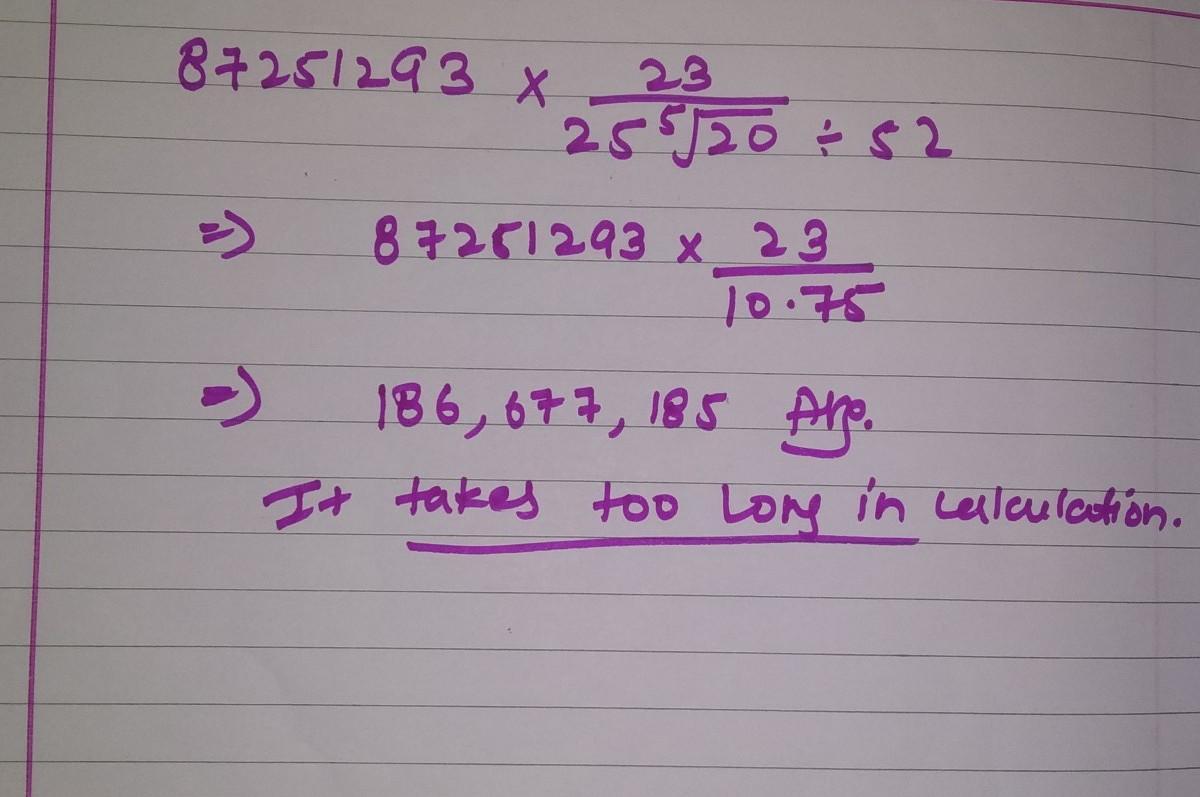 87251293 × 23
25 ⁵√20 ÷ 52
⇒ 87251293 × 23
10.75
⇒ 186,677,185 Ans.
It takes too Long in calculation.